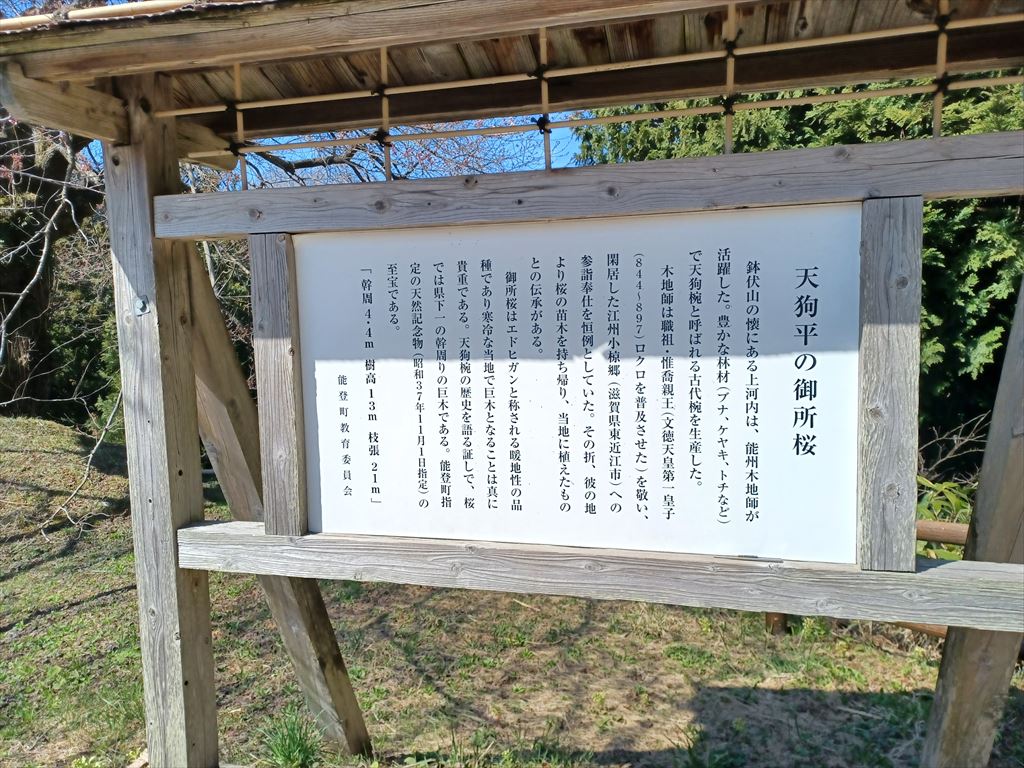 天狗平の御所桜
鉢伏山の懐にある上河内は、能州木地師が
活躍した。豊かな林材（ブナ、ケヤキ、トチなど）
で天狗椀と呼ばれる古代椀を生産した。
木地師は職祖・惟喬親王（文徳天皇第一皇子
（８４４～８９７）ロクロを普及させた）を敬い、
閑居した江州小椋郷（滋賀県東近江市）への
参詣奉仕を恒例としていた。その折、彼の地
より桜の苗木を持ち帰り、当地に植えたもの
との伝承がある。
御所桜はエドヒガンと称される暖地性の品
種であり寒冷な当地で巨木となることは真に
貴重である。天狗椀の歴史を語る証しで、桜
では県下一の幹周りの巨木である。能登町指
定の天然記念物（昭和３７年１１月１日指定）の
至宝である。
「幹周４・４ｍ 樹高１３ｍ 枝張２１ｍ」
能登町教育委員会